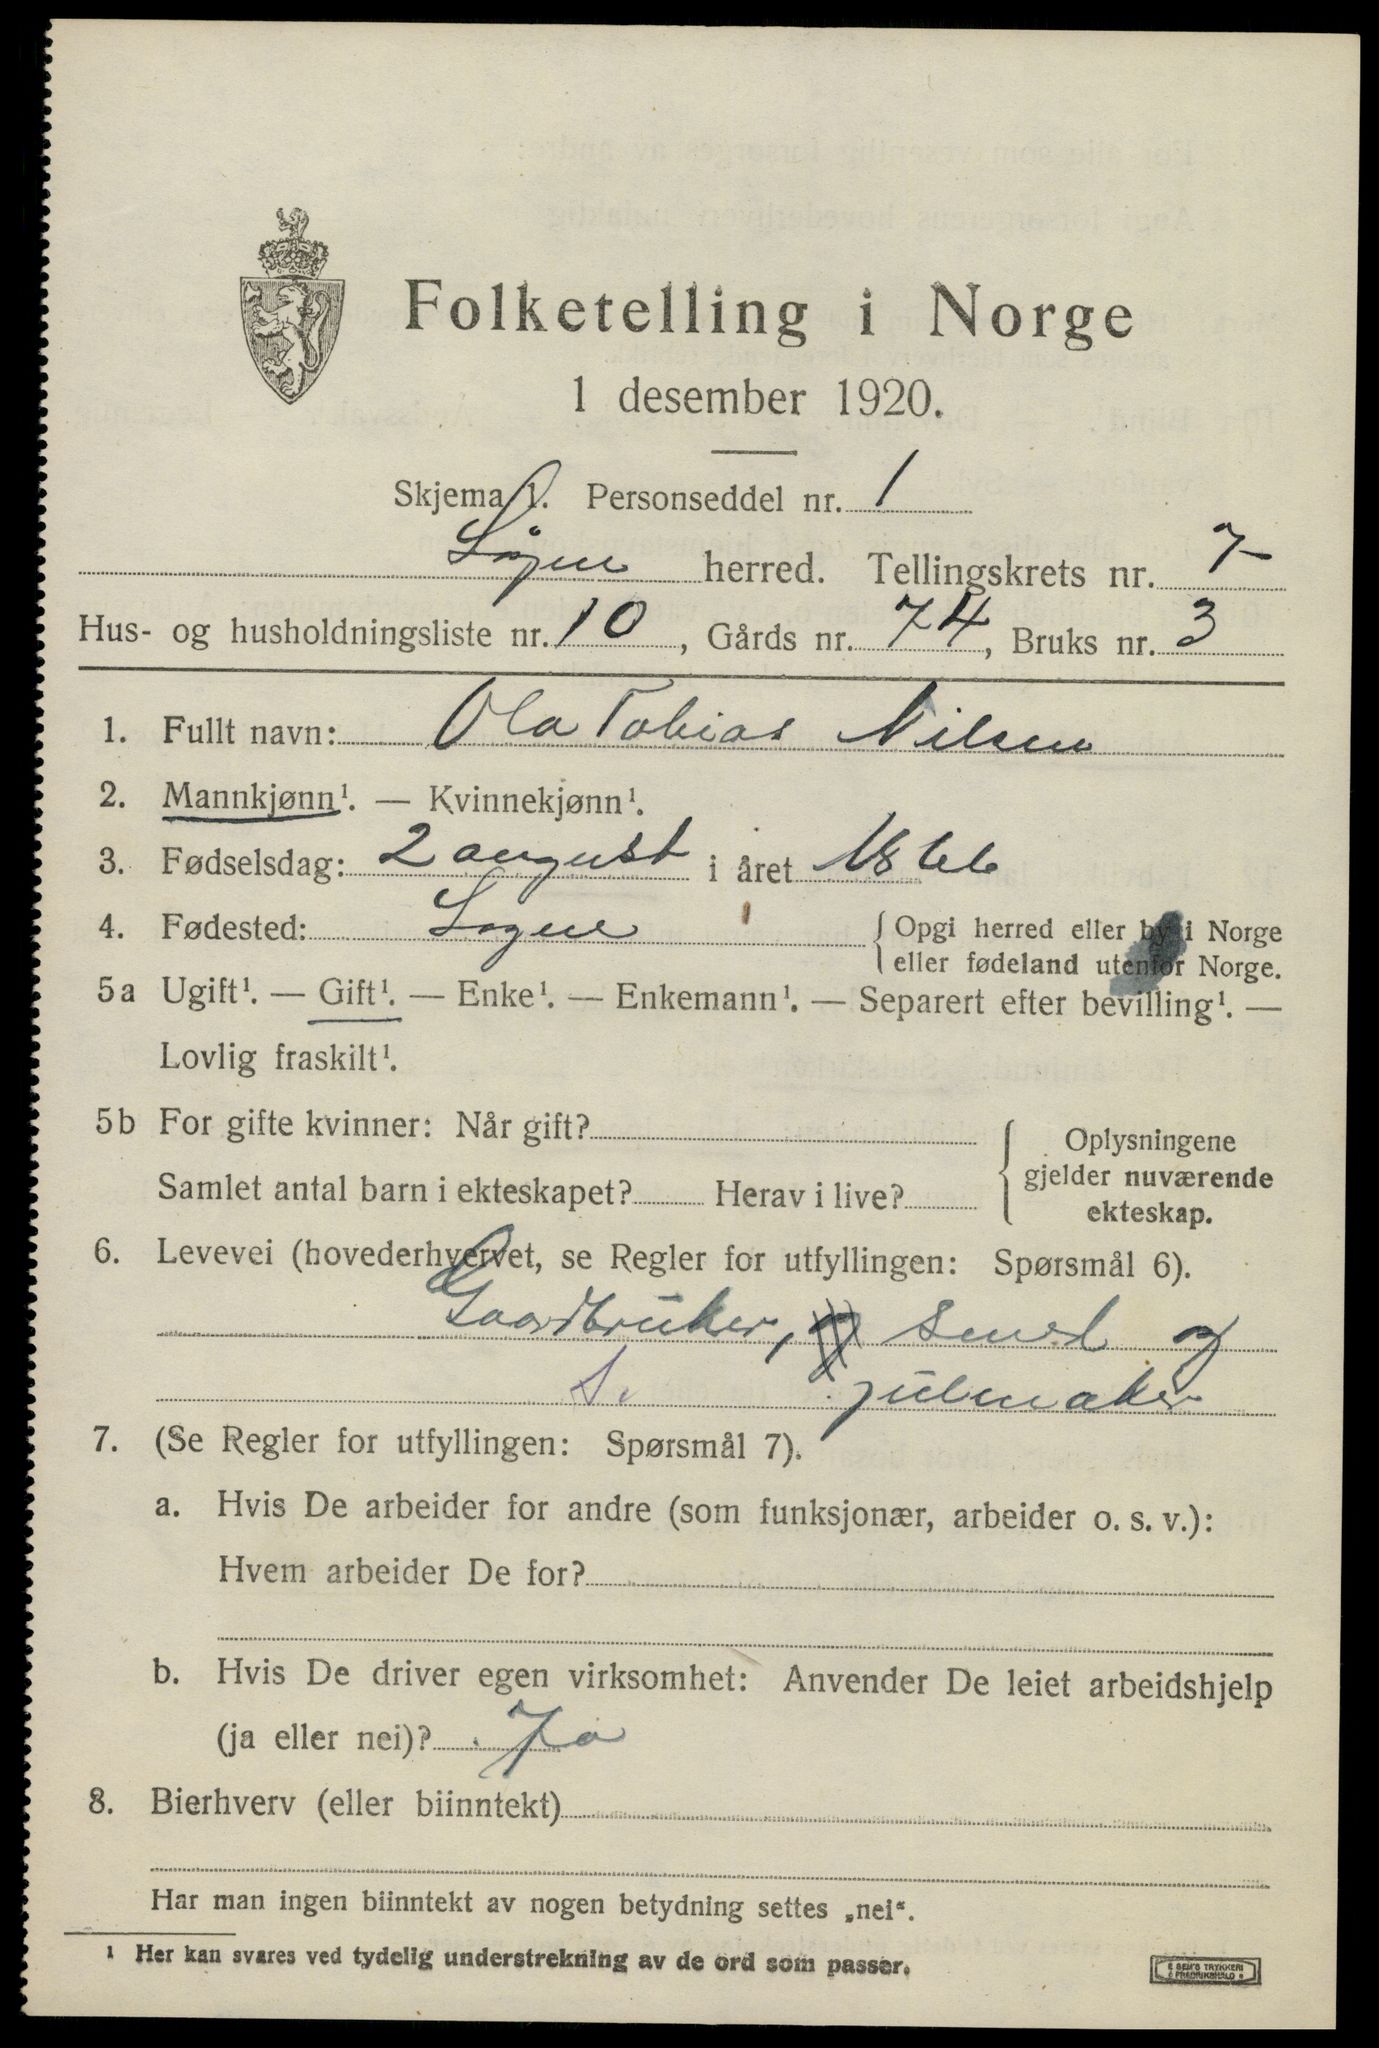 Folketelling i Norge
1 desember 1920.
Skjema 1. Personseddel nr. 1
Søgne herred. Tellingskrets nr. 7
Hus- og husholdningsliste nr. 10, Gårds nr. 74, Bruks nr. 3
1. Fullt navn: Ola Tobias Nilsen
2. Mannkjønn¹. — Kvinnekjønn¹.
3. Fødselsdag: 2 august i året 1866
4. Fødested: Søgne { Opgi herred eller by i Norge
eller fødeland utenfor Norge.
5a Ugift¹. — Gift¹. — Enke¹. — Enkemann¹. — Separert efter bevilling¹. —
Lovlig fraskilt¹.
5b For gifte kvinner: Når gift?
Samlet antal barn i ekteskapet? Herav i live?
{ Oplysningene
gjelder nuværende
ekteskap.
6. Levevei (hovederhvervet, se Regler for utfyllingen: Spørsmål 6).
Gaardbruker, og Smed og
S. julmaker
7. (Se Regler for utfyllingen: Spørsmål 7).
a. Hvis De arbeider for andre (som funksjonær, arbeider o. s. v.):
Hvem arbeider De for?
b. Hvis De driver egen virksomhet: Anvender De leiet arbeidshjelp
(ja eller nei)? Ja
8. Bierhverv (eller biinntekt)
Har man ingen biinntekt av nogen betydning settes „nei“.
¹ Her kan svares ved tydelig understrekning av de ord som passer.
E SEM'S TRYKKERI
FREDRIKSHALD